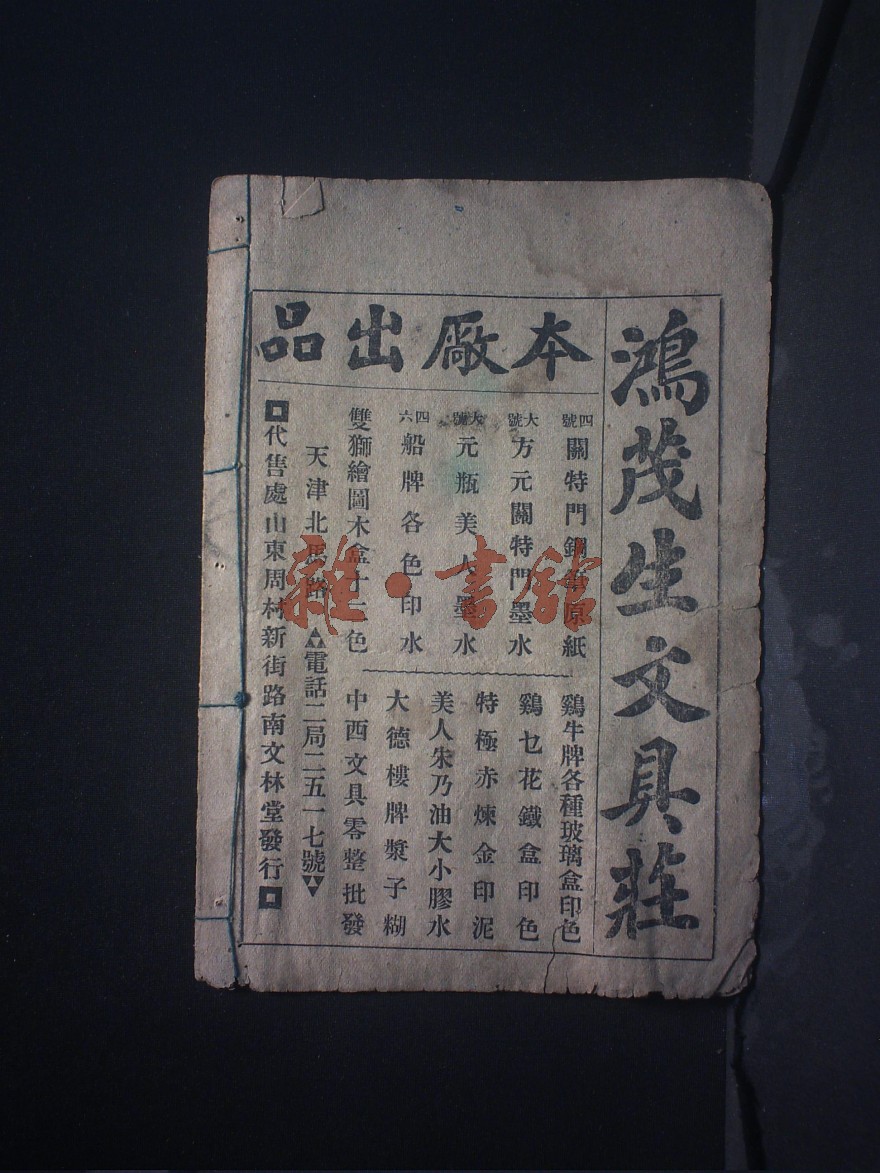 鴻茂生文具莊
本廠出品
四號關特門鋼筆原紙
大號方元關特門墨水
大號元瓶美人墨水
四六船牌各色印水
雙獅繪圖木盒十二色
鷄牛牌各種玻璃盒印色
鷄乜花鐵盒印色
特極赤煉金印泥
美人朱乃油大小膠水
大德樓牌漿子糊
中西文具零整批發
天津北馬路
電話二局二五一七號
代售處山東周村新街路南文林堂發行
雜·書館